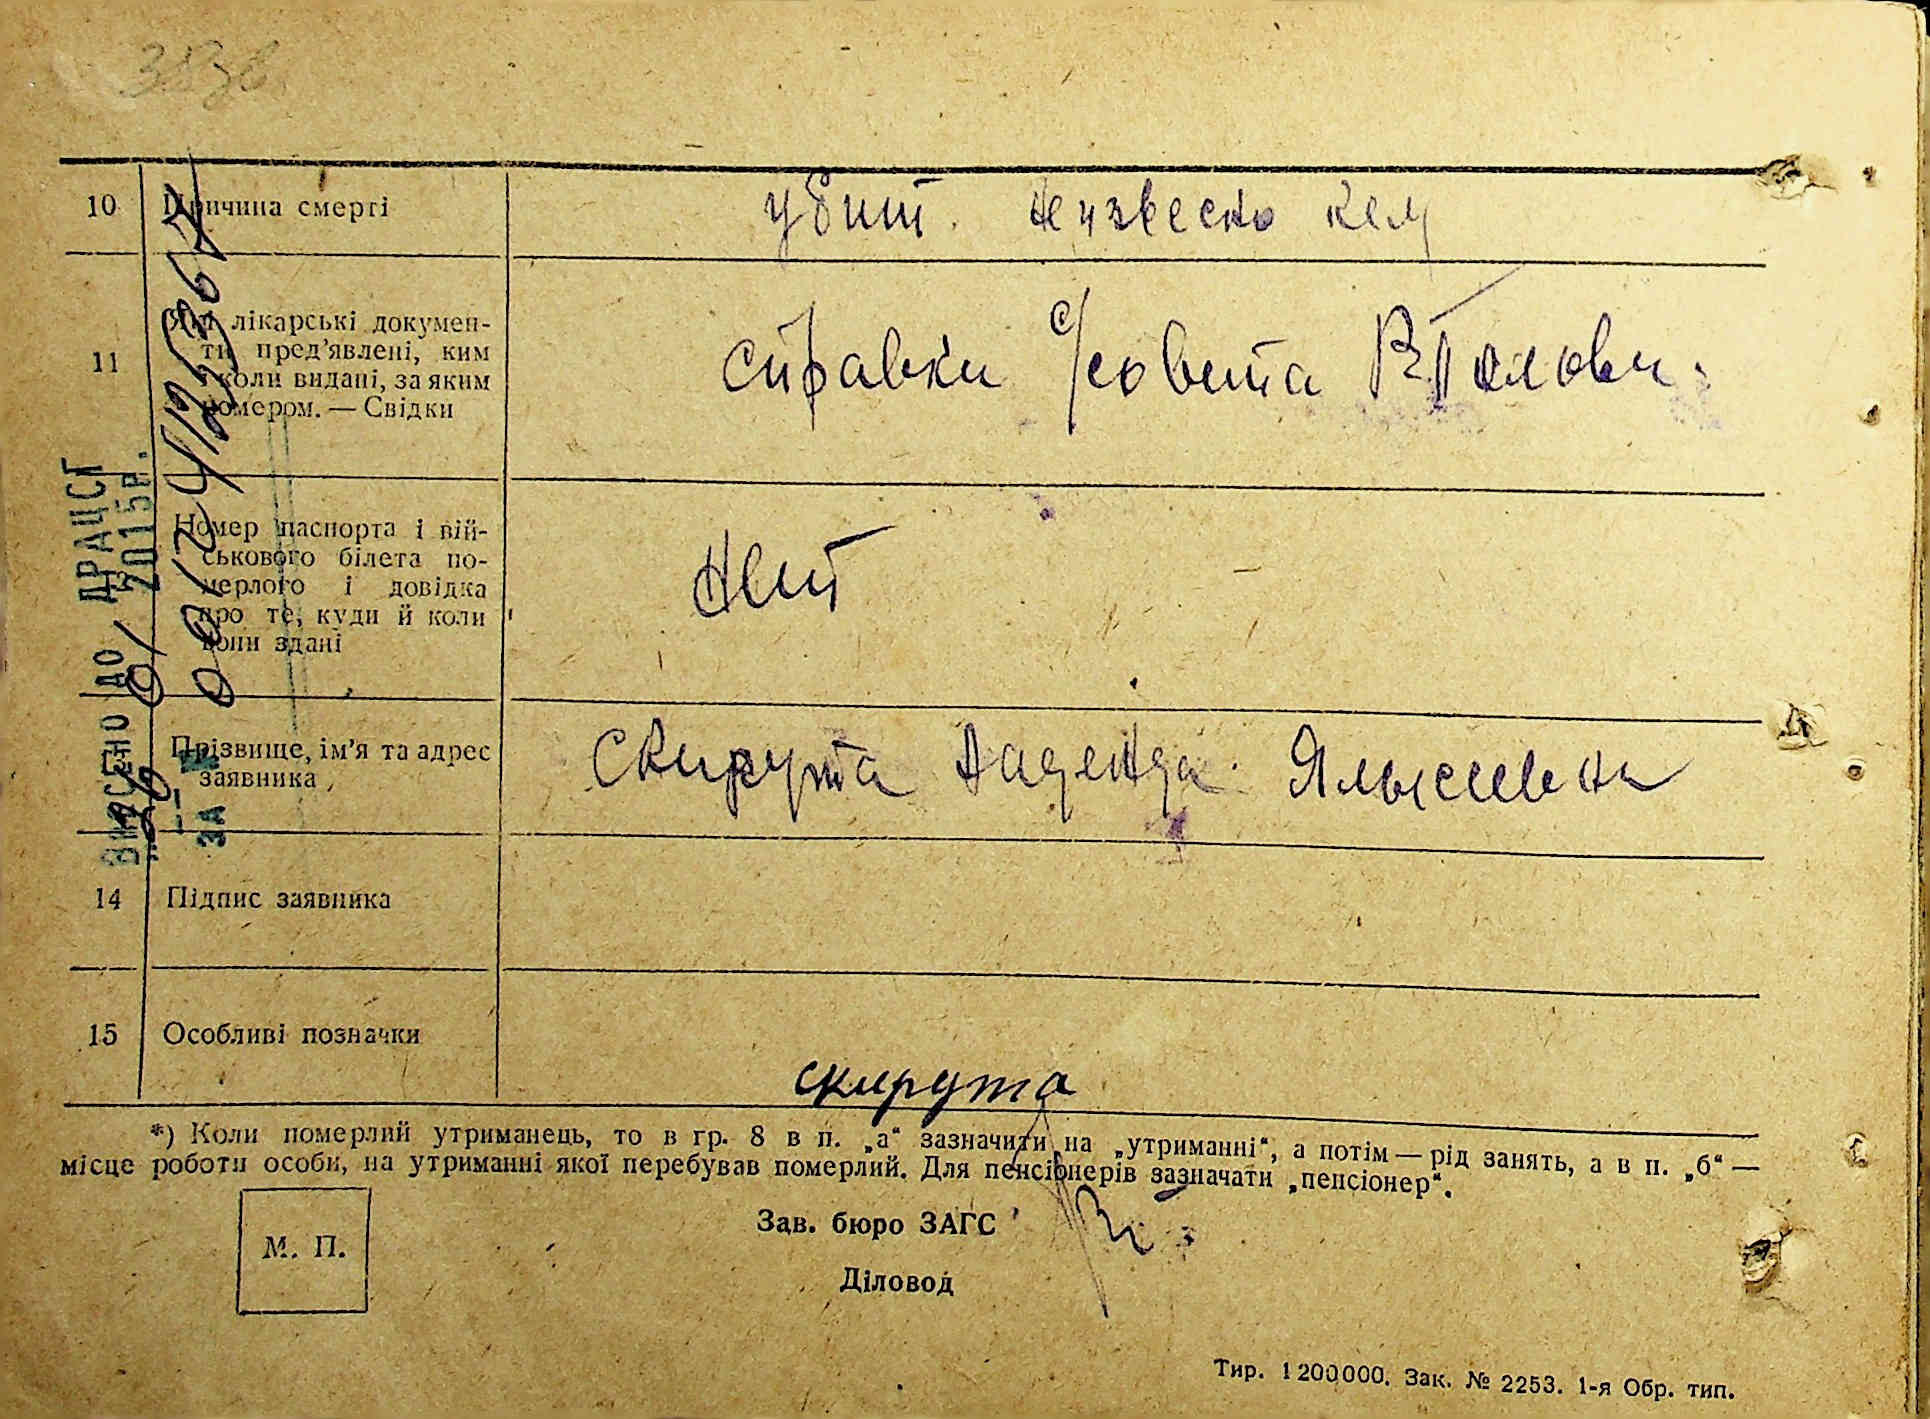 10 Причина смерті убит. неизвесно кем
11 Які лікарські докумен-
ти пред'явлені, ким
і коли видані, за яким
номером. — Свідки
справки с/совета
Номер паспорта і вій-
ськового білета по-
мерлого і довідка
про те, куди й коли
вони здані
нет
Прізвище, ім'я та адрес
заявника
Скирута Надежда
14 Підпис заявника
15 Особливі позначки
скирута
*) Коли померлий утриманець, то в гр. 8 в п. „а“ зазначити на „утриманні“, а потім — рід занять, а в п. „б“ —
місце роботи особи, на утриманні якої перебував померлий. Для пенсіонерів зазначати „пенсіонер“.
М. П.
Зав. бюро ЗАГС
Діловод
Тир. 1200000. Зак. № 2253. 1-я Обр. тип.
ВНЕСЕНО ДО ДРАЦСГ
2015р.
ЗА №